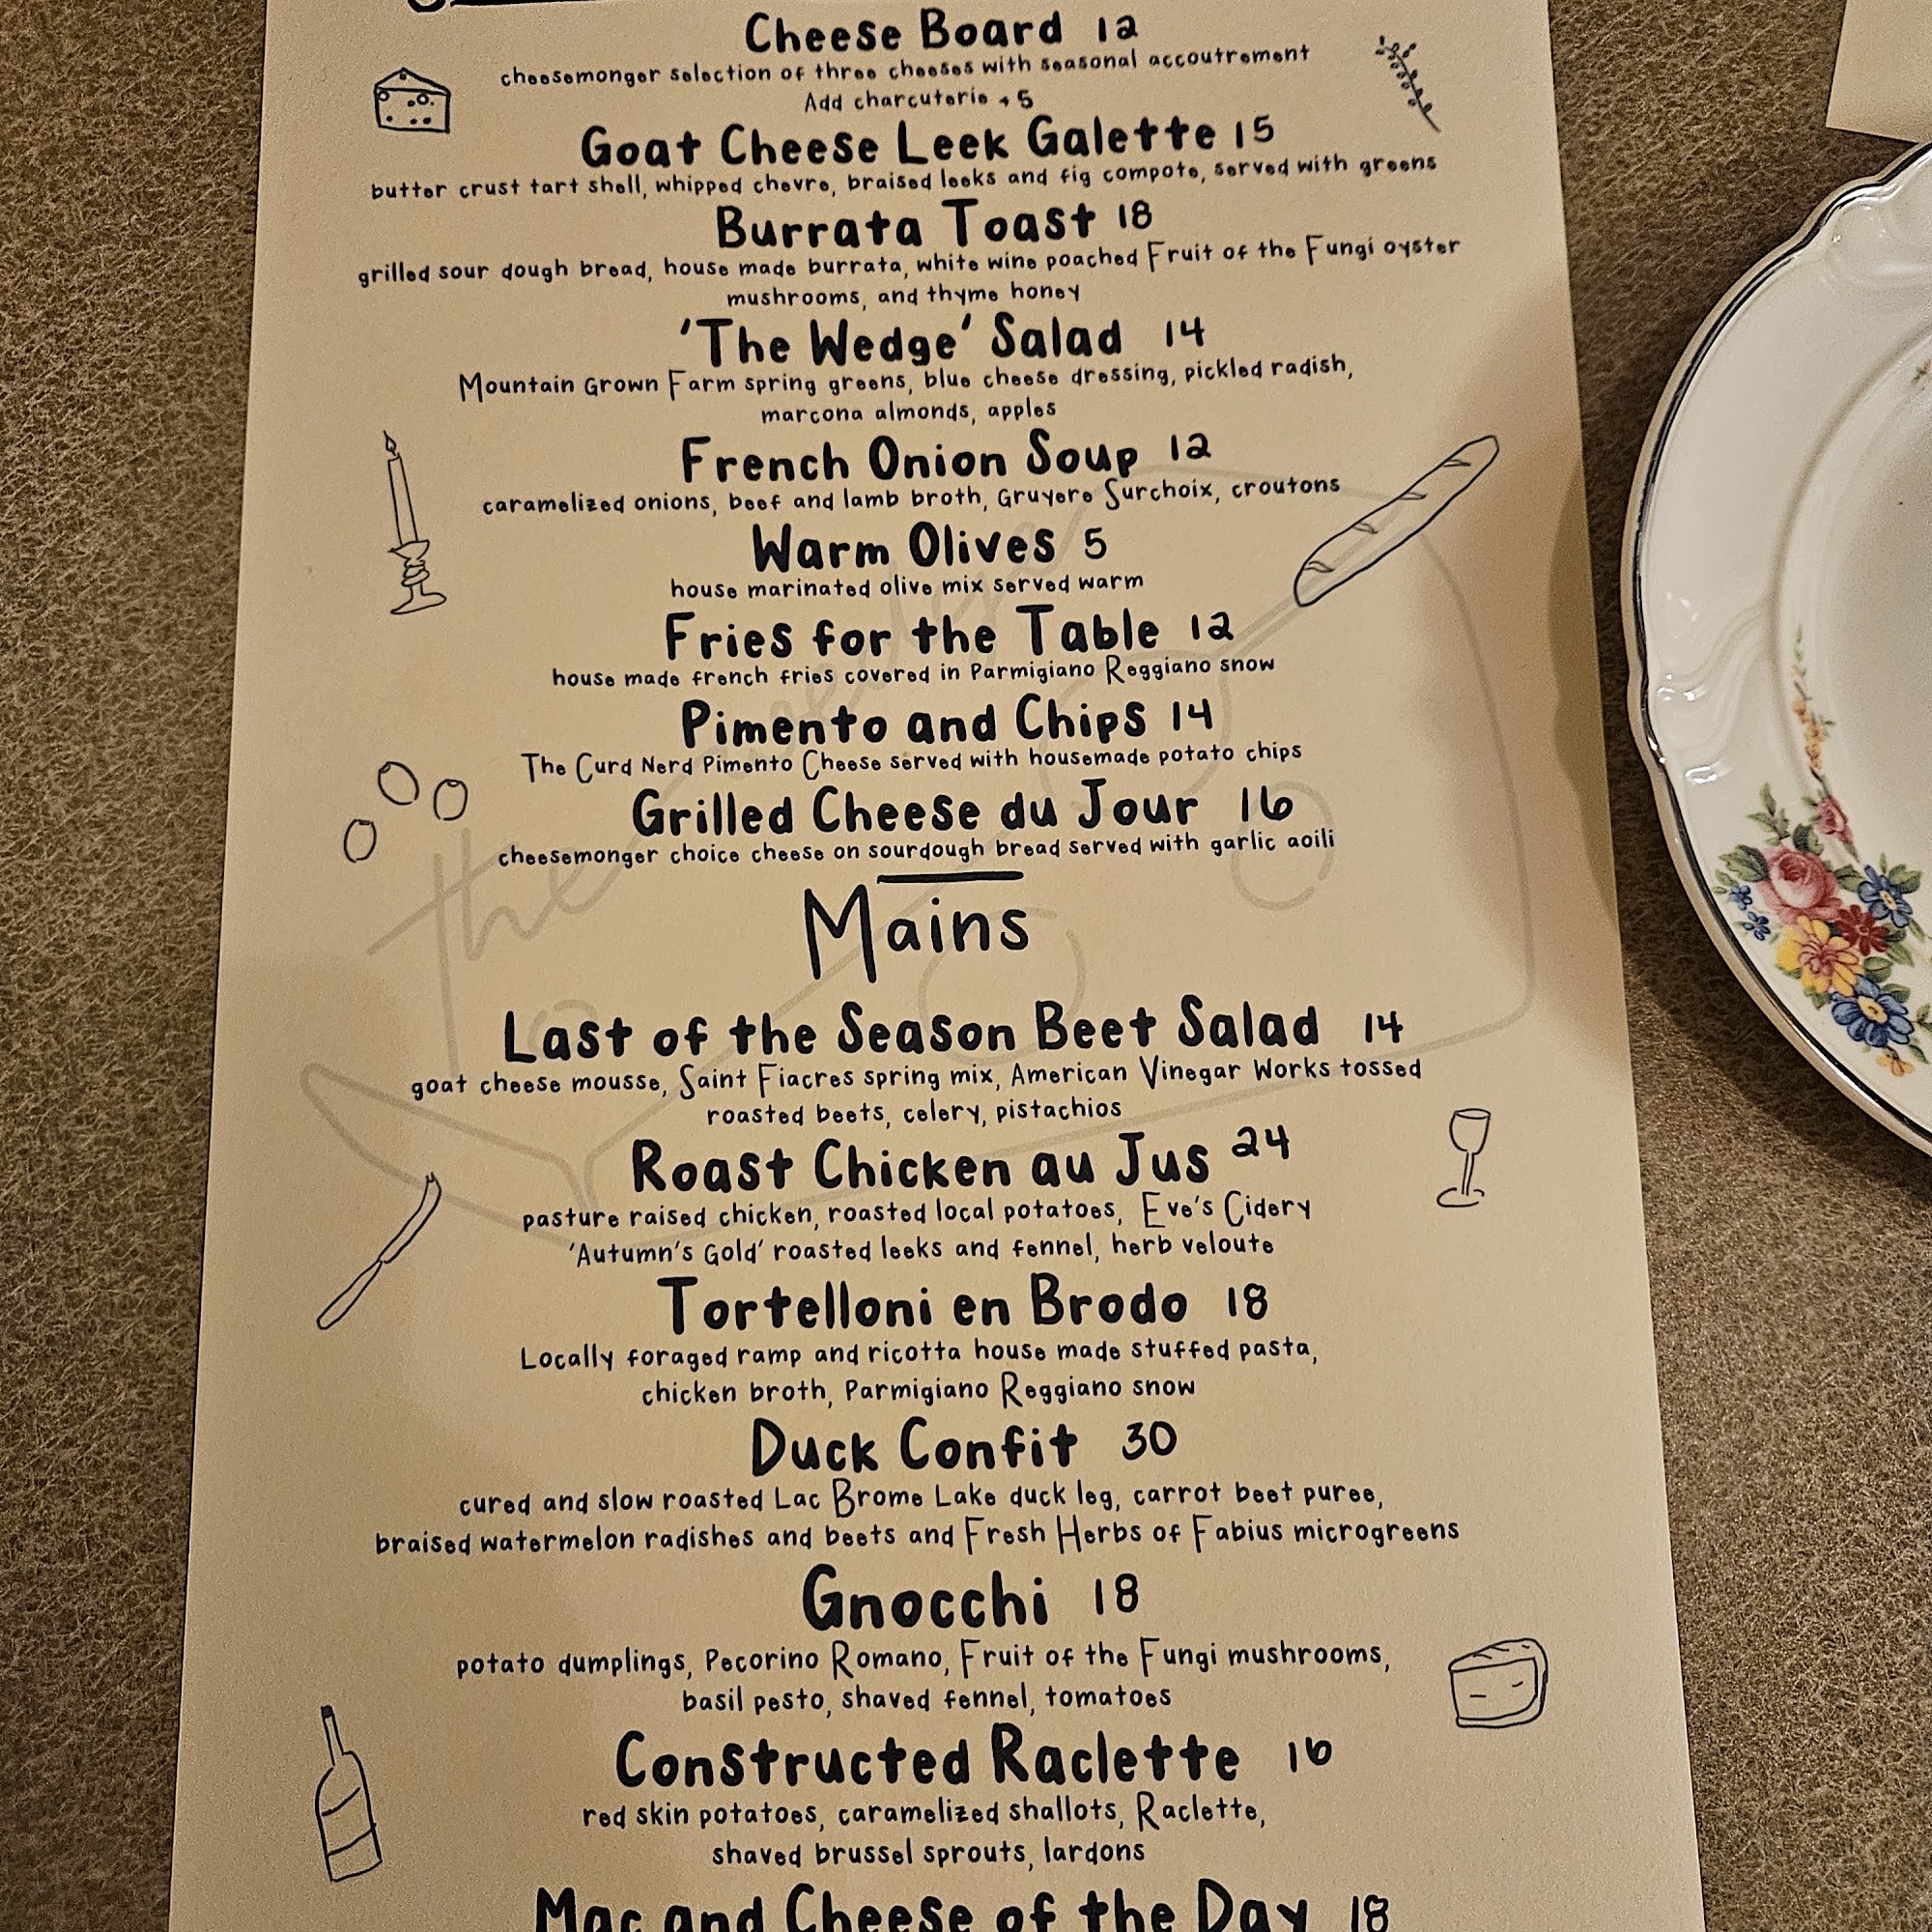 Cheese Board 12
cheesemonger selection of three cheeses with seasonal accoutrement
Add charcuterie +5
Goat Cheese Leek Galette 15
butter crust tart shell, whipped chevre, braised leeks and fig compote, served with greens
Burrata Toast 18
grilled sour dough bread, house made burrata, white wine poached Fruit of the Fungi oyster
mushrooms, and thyme honey
'The Wedge' Salad 14
Mountain Grown Farm spring greens, blue cheese dressing, pickled radish,
marcona almonds, apples
French Onion Soup 12
caramelized onions, beef and lamb broth, Gruyere Surchoix, croutons
Warm Olives 5
house marinated olive mix served warm
Fries for the Table 12
house made french fries covered in Parmigiano Reggiano snow
Pimento and Chips 14
The Curd Nerd Pimento Cheese served with housemade potato chips
Grilled Cheese du Jour 16
cheesemonger choice cheese on sourdough bread served with garlic aoili
the
Mains
Last of the Season Beet Salad 14
goat cheese mousse, Saint Fiacres spring mix, American Vinegar Works tossed
roasted beets, celery, pistachios
Roast Chicken au Jus 24
pasture raised chicken, roasted local potatoes, Eve's Cidery
'Autumn's Gold' roasted leeks and fennel, herb veloute
Tortelloni en Brodo 18
Locally foraged ramp and ricotta house made stuffed pasta,
chicken broth, Parmigiano Reggiano snow
Duck Confit 30
cured and slow roasted Lac Brome Lake duck leg, carrot beet puree,
braised watermelon radishes and beets and Fresh Herbs of Fabius microgreens
Gnocchi 18
potato dumplings, Pecorino Romano, Fruit of the Fungi mushrooms,
basil pesto, shaved fennel, tomatoes
Constructed Raclette 16
red skin potatoes, caramelized shallots, Raclette,
shaved brussel sprouts, lardons
Mac and Cheese of the Day 18